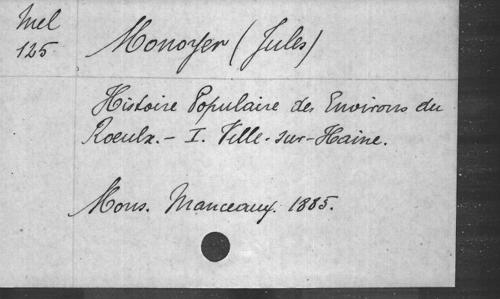 Mel
125
Monoyer (Jules)
Histoire Populaire des Environs du
Roeulx. - I. Ville-sur-Haine.
Mons. Manceaux. 1885.